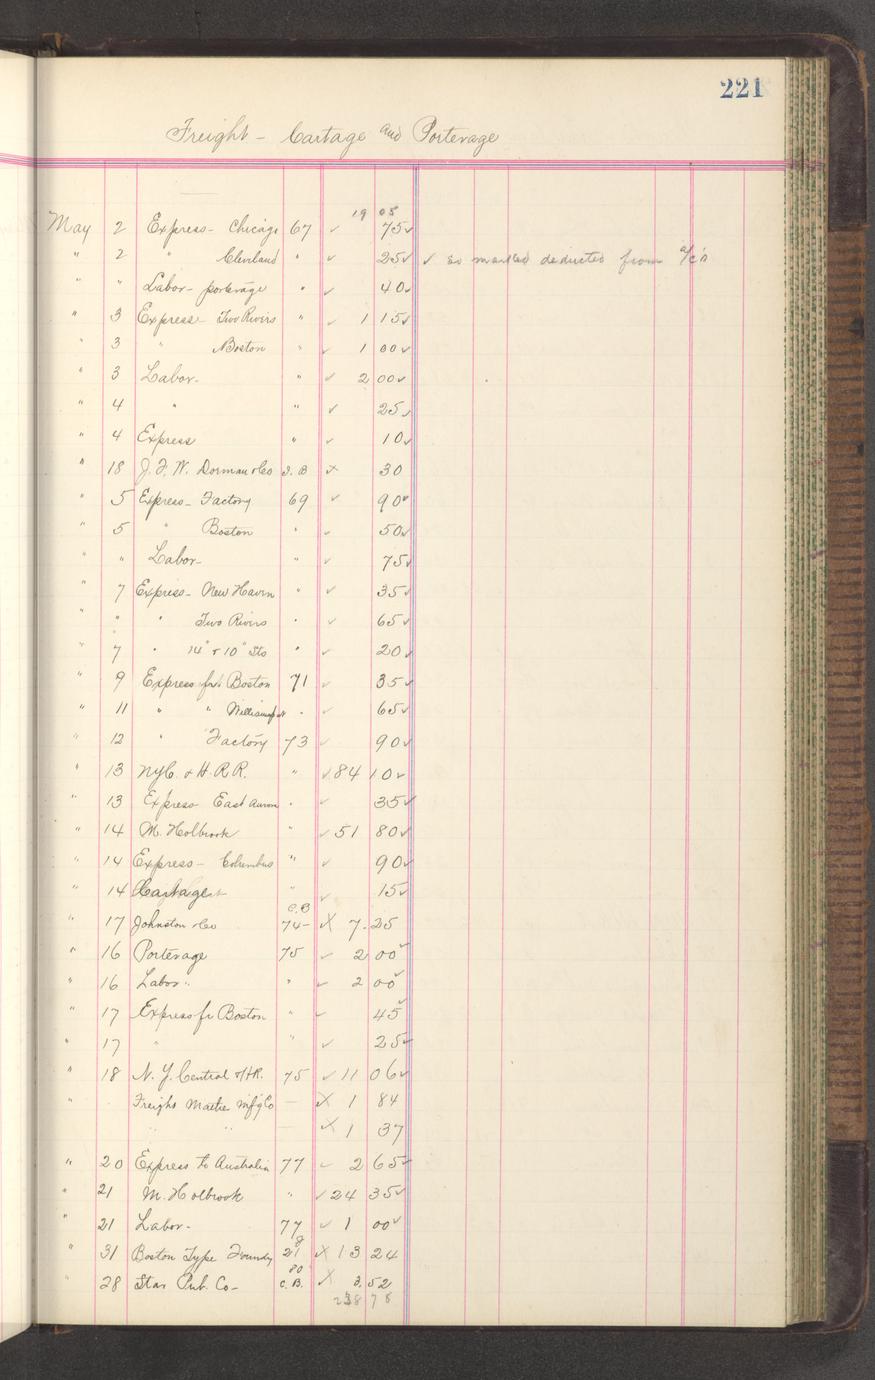 221
Freight - Cartage and Porterage
19 05
May 2 Express - Chicago 67 ✓ 75✓
" 2 " Cleveland " ✓ 25✓ ✓ so marked deducted from a/c's
" " Labor - porterage " ✓ 40✓
" 3 Express - Two Rivers " ✓ 1 15✓
" 3 " Boston " ✓ 1 00✓
" 3 Labor - " ✓ 2 00✓
" 4 " " ✓ 25✓
" 4 Express " ✓ 10✓
" 18 J. F. W. Dorman & Co X 30
" 5 Express - Factory 69 ✓ 90✓
" 5 " Boston " ✓ 50✓
" " Labor - " ✓ 75✓
" 7 Express - New Haven " ✓ 35✓
" " " Two Rivers " ✓ 65✓
" 7 " 14" & 10" Sts " ✓ 20✓
" 9 Express fr. Boston 71 ✓ 35✓
" 11 " " " ✓ 65✓
" 12 " Factory 73 ✓ 90✓
" 13 NYC. & H. R.R. " ✓ 84 10✓
" 13 Express East Aurora " ✓ 35✓
" 14 M. Holbrook " ✓ 51 80✓
" 14 Express - Columbus " ✓ 90✓
" 14 Cartage " ✓ 15✓
" 17 Johnston & Co C.B 74- X 7.25
" 16 Porterage 75 ✓ 2 00✓
" 16 Labor " " ✓ 2 00✓
" 17 Express fr Boston " ✓ 45✓
" 17 " " ✓ 25✓
" 18 N. Y. Central & HR. 75 ✓ 11 06✓
" Freight Mfg Co - X 1 84
" " X 1 37
" 20 Express to Australia 77 ✓ 2 65✓
" 21 M. Holbrook " ✓ 24 35✓
" 21 Labor - 77 ✓ 1 00✓
" 31 Boston Type Foundry X 13 24
" 28 Star Pub. Co - 80 C.B. X 3.52
238 78